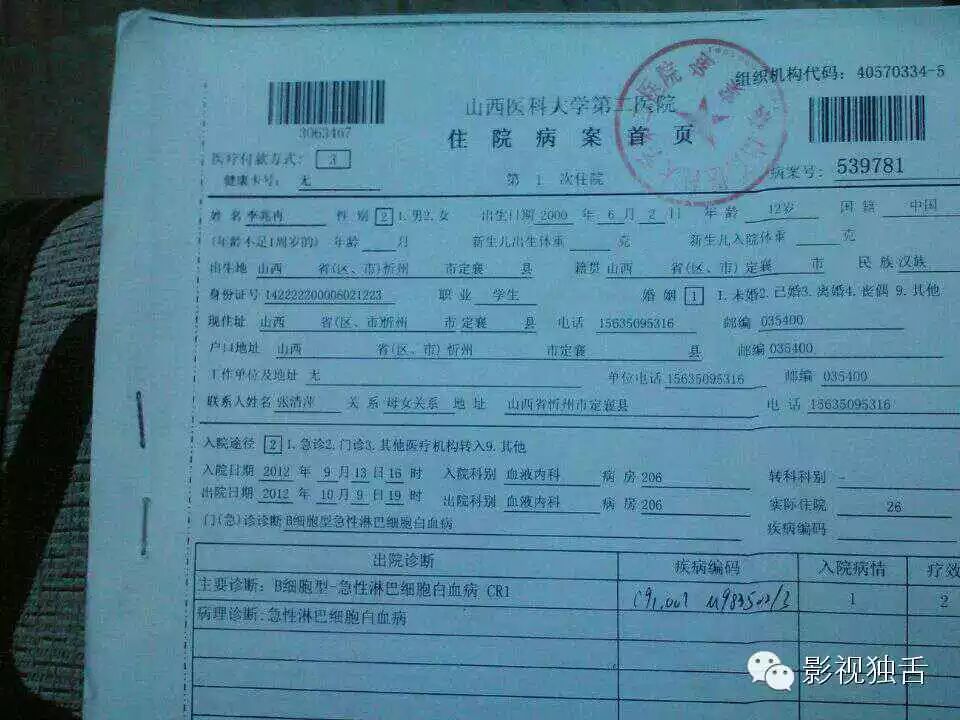 组织机构代码：40570334-5
3063467
山西医科大学第二医院
住院病案首页
医疗付款方式：3
健康卡号：无
第 1 次住院
病案号：539781
姓名 李兆冉 性别 2 1.男2.女 出生日期2000 年 6 月 2 日 年龄 12岁 国籍 中国
(年龄不足1周岁的) 年龄 月 新生儿出生体重 克 新生儿入院体重 克
出生地 山西 省(区、市)忻州 市定襄 县 籍贯 山西 省(区、市)定襄 市 民族 汉族
身份证号 142222200006021223 职业 学生 婚姻 1 1.未婚2.已婚3.离婚4.丧偶 9.其他
现住址 山西 省(区、市)忻州 市定襄 县 电话 15635095316 邮编 035400
户口地址 山西 省(区、市)忻州 市定襄 县 邮编 035400
工作单位及地址 无 单位电话 15635095316 邮编 035400
联系人姓名 张清萍 关系 母女关系 地址 山西省忻州市定襄县 电话 15635095316
入院途径 2 1.急诊2.门诊3.其他医疗机构转入9.其他
入院日期 2012 年 9 月 13 日 16 时 入院科别 血液内科 病房 206 转科科别 -
出院日期 2012 年 10 月 9 日 19 时 出院科别 血液内科 病房 206 实际住院 26
门(急)诊诊断 B细胞型急性淋巴细胞白血病 疾病编码
出院诊断 疾病编码 入院病情 疗效
主要诊断：B细胞型-急性淋巴细胞白血病 CR1 1 2
病理诊断:急性淋巴细胞白血病
影视独舌